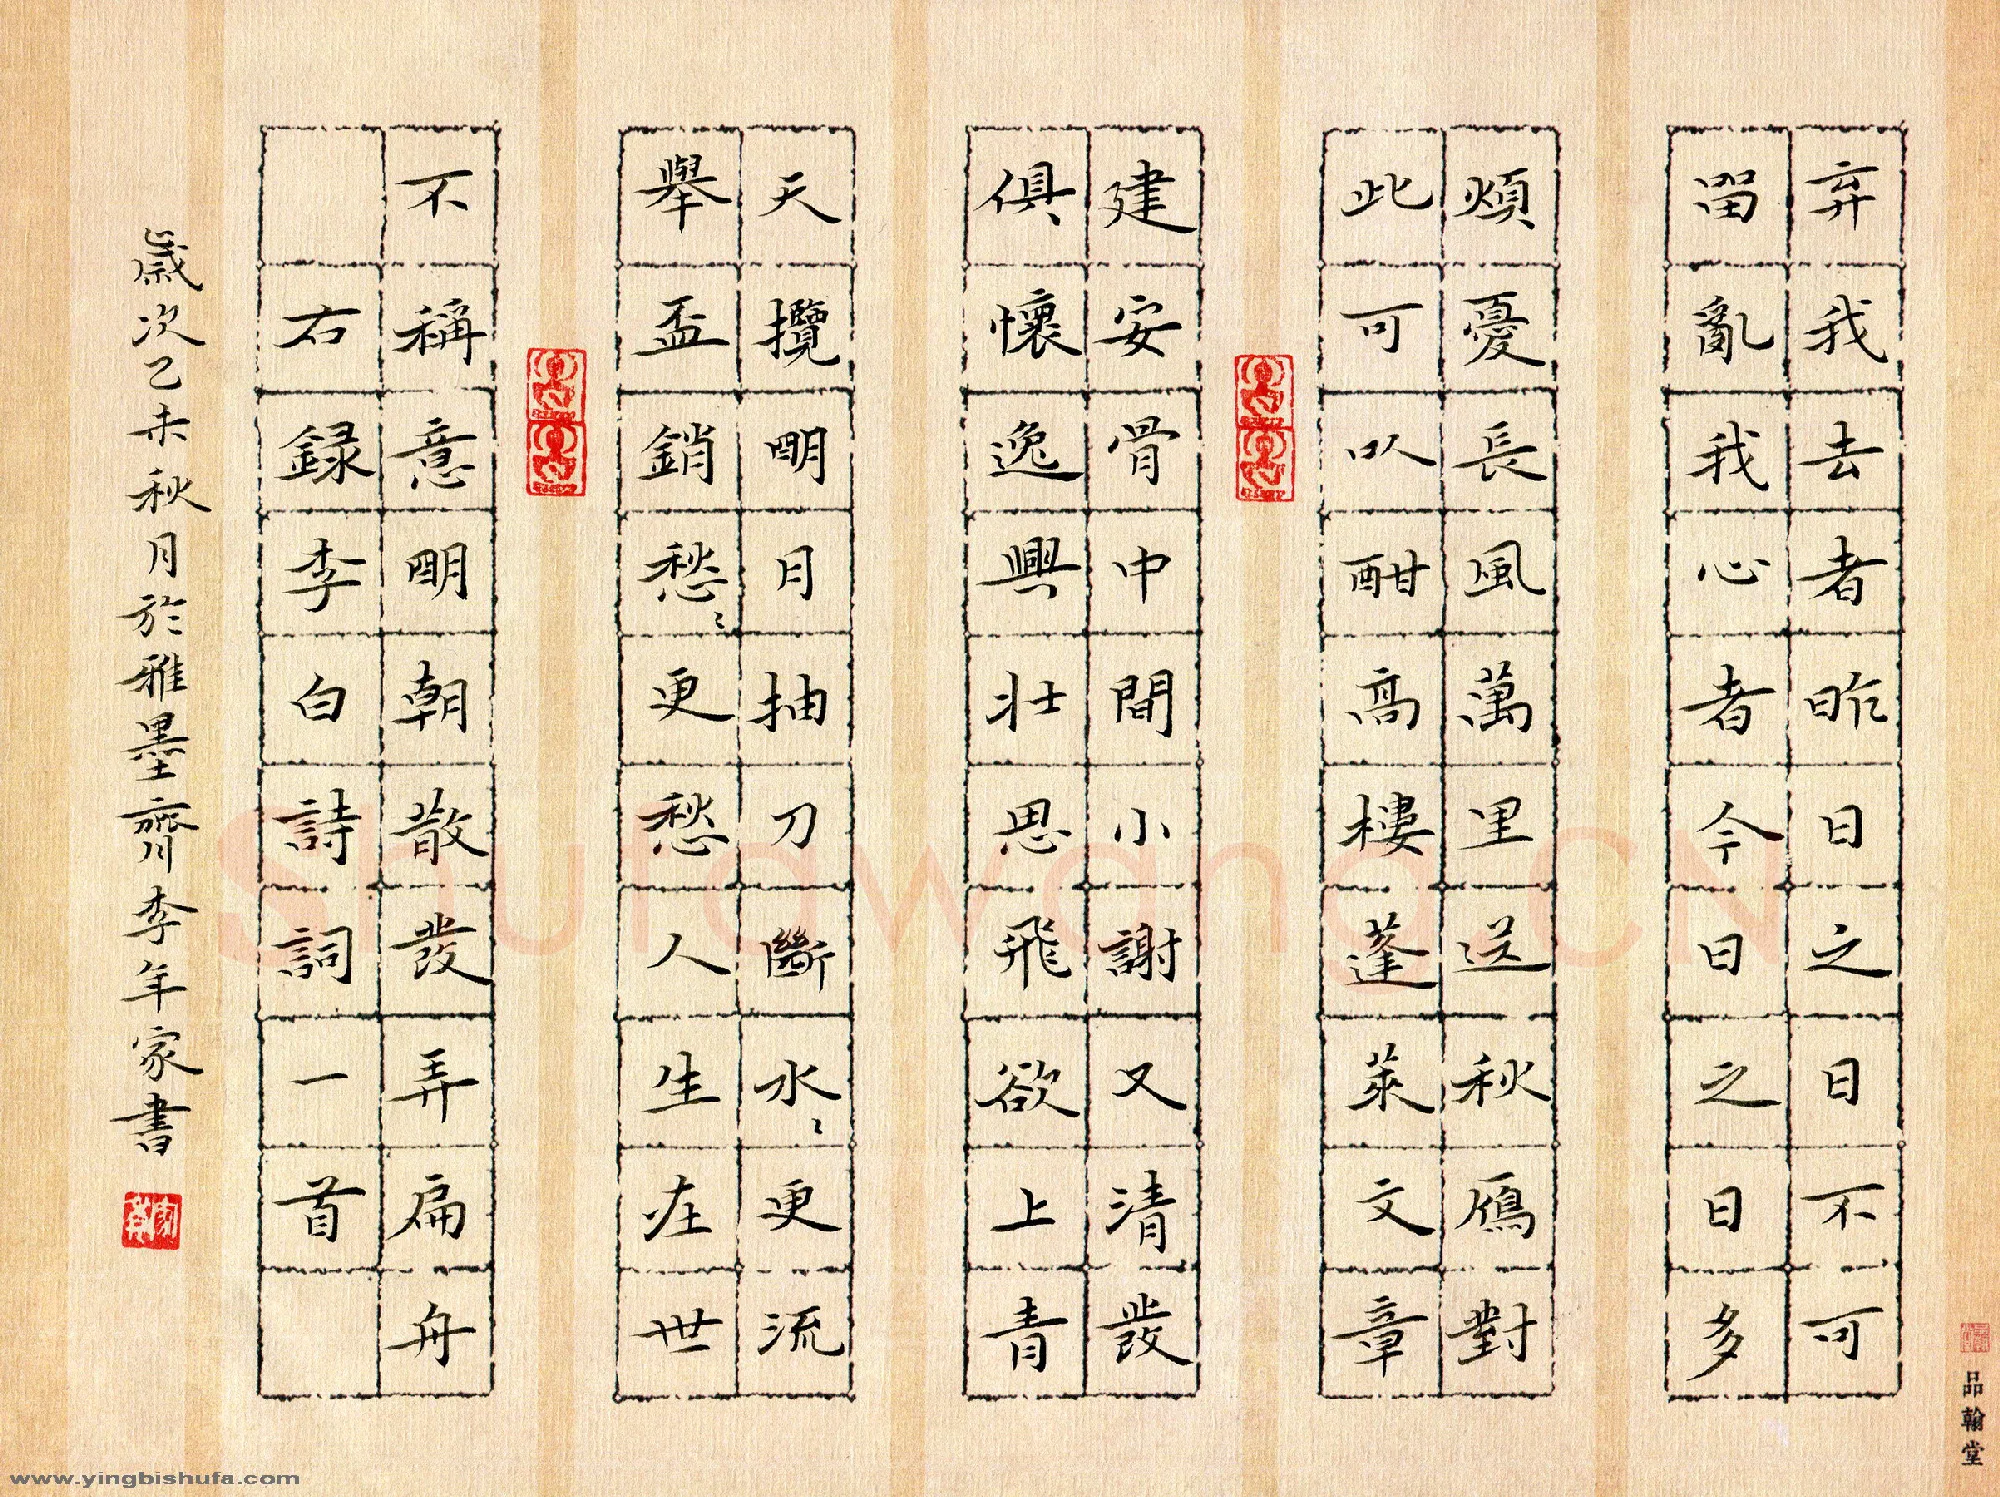 弃我去者昨日之日不可
留亂我心者今日之日多
煩憂長風萬里送秋鴈對
此可以酣高樓蓬萊文章
建安骨中間小謝又清發
俱懷逸興壯思飛欲上青
天攬明月抽刀斷水〻更流
舉盃銷愁〻更愁人生在世
不稱意明朝散發弄扁舟
右録李白詩詞一首
歲次乙未秋月於雅墨齋李年家書
品翰堂
Shufawang.CN
www.yingbishufa.com